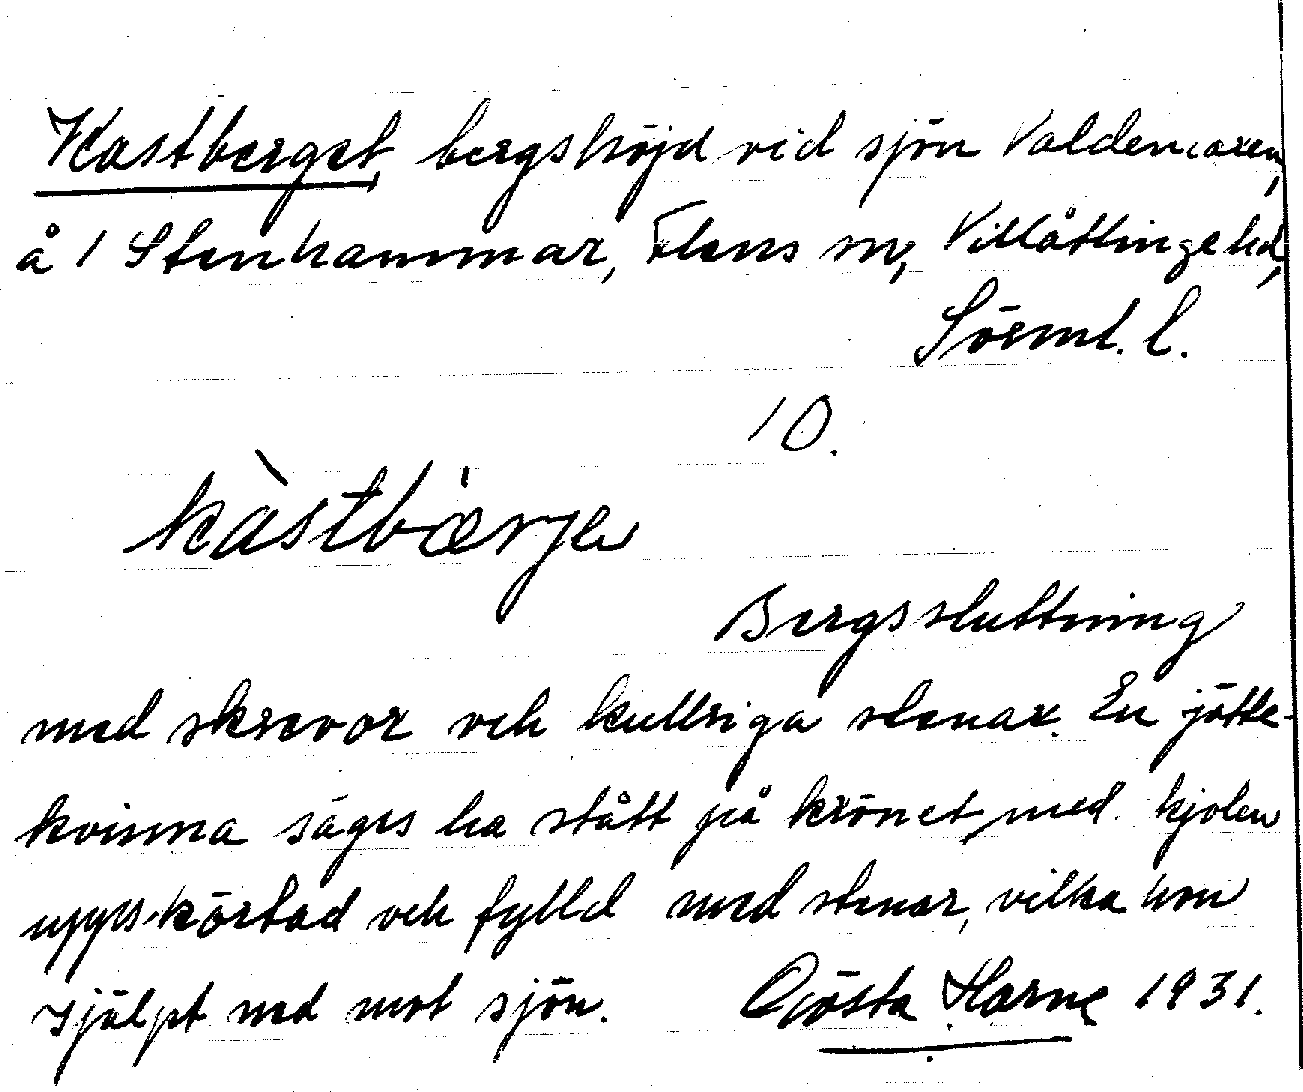 Kastberget, bergshöjd vid sjön Valdemaren,
å 1 Stenhammar, Flens sn, Villåttinge hd,
Sörml. l.
10.
kàstbæ̀rje
Bergssluttning
med skrevor och kullriga stenar. En jätte-
kvinna säges ha stått på krönet, med kjolen
uppskörtad och fylld med stenar, vilka hon
stjälpt ned mot sjön. Gösta Harne 1931.